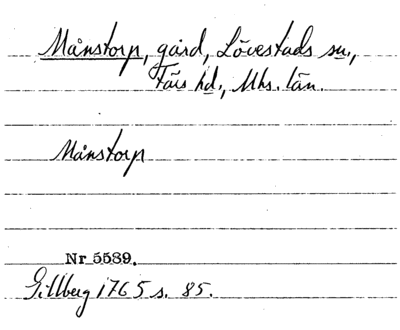 Månstorp, gård, Lövestads sn.,
Färs hd., Mhs. län.
Månstorp
Nr 5589.
Gillberg 1765 s. 85.